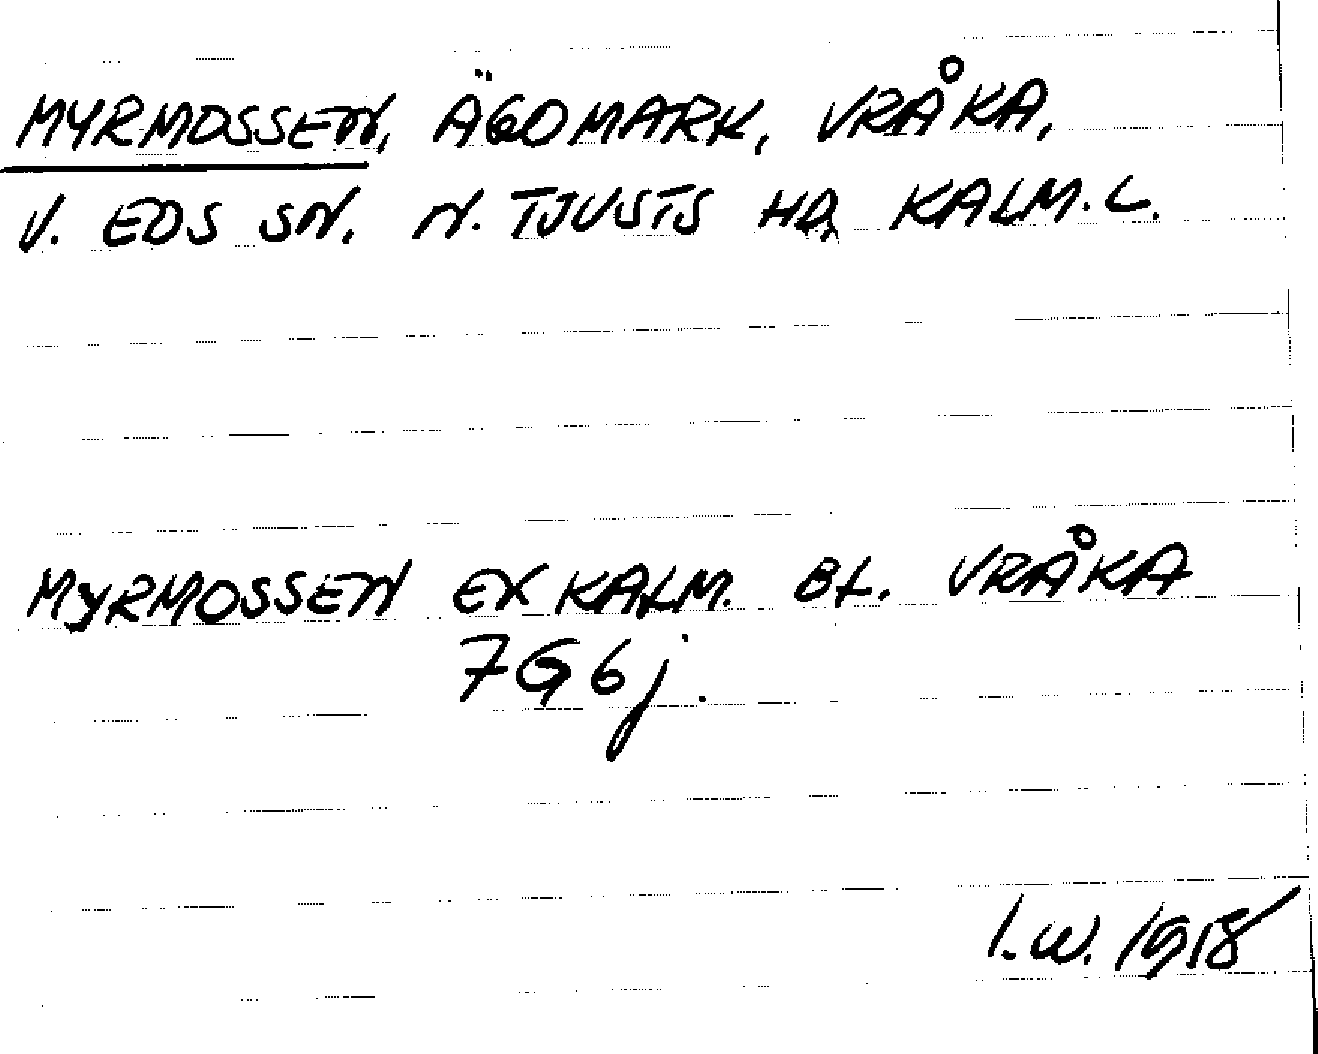 MYRMOSSEN, ÄGOMARK, VRÅKA,
V. EDS SN. N. TJUSTS HD, KALM. L.
MYRMOSSEN EK KALM. BL. VRÅKA
7G6j.
I.W. 1918